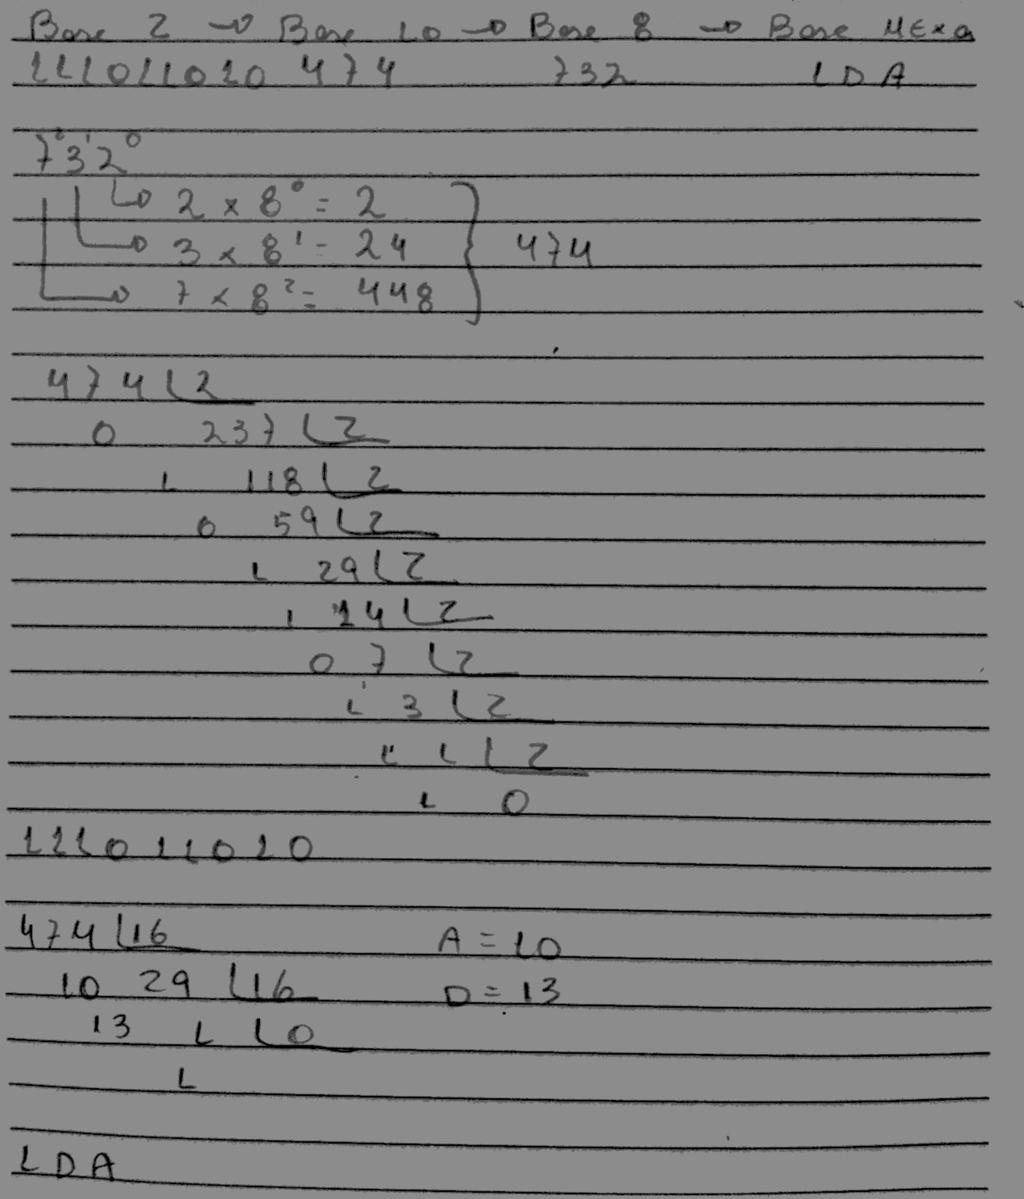 Base 2 → Base 10 → Base 8 → Base HExa
111011010 474 732 1DA
7²3¹2⁰
↳ 2 x 8⁰ = 2
↳ 3 x 8¹ = 24 } 474
↳ 7 x 8² = 448
474 |2
0 237 |2
1 118 |2
0 59 |2
1 29 |2
1 14 |2
0 7 |2
1 3 |2
1 1 |2
1 0
111011010
474 |16 A = 10
10 29 |16 D = 13
13 1 |0
1
1DA